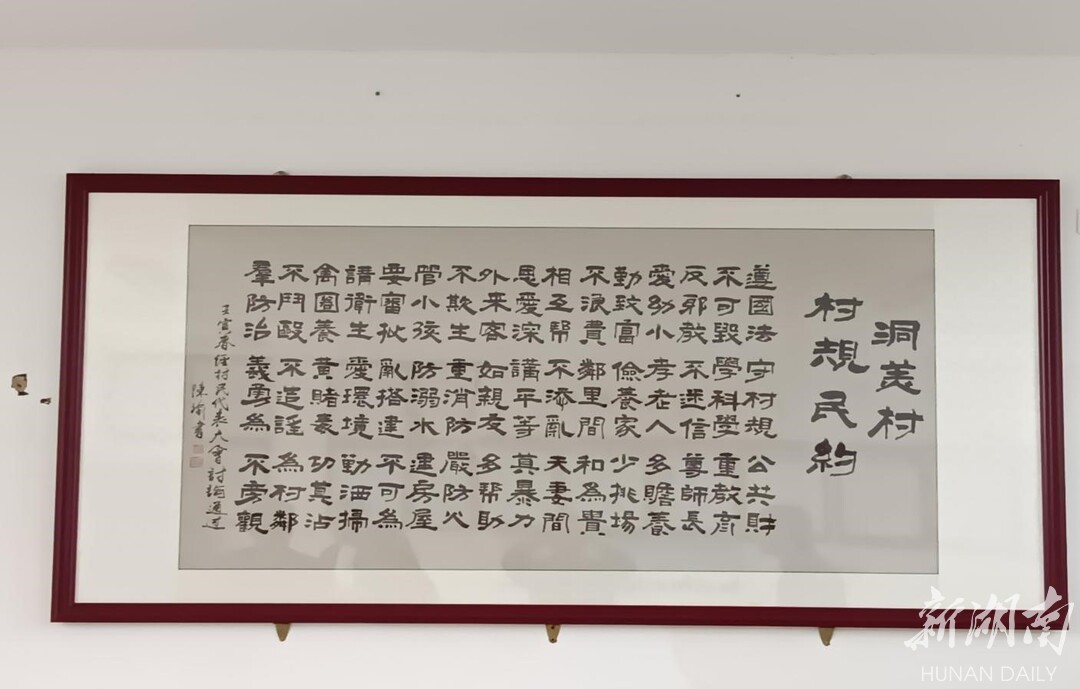 洞美村
村規民約
遵國法 守村規 公共財
不可毀 學科學 重教育
反邪教 不迷信 尊師長
愛幼小 孝老人 多贍養
勤致富 儉養家 少挑場
不浪費 鄰里間 和為貴
相互幫 不添亂 夫妻間
恩愛深 講平等 莫暴力
外來客 如親友 多幫助
不欺生 重消防 嚴防火
管小孩 防溺水 建房屋
要審批 亂搭建 不可為
講衛生 愛環境 勤洒掃
禽圈養 黃賭毒 切莫沾
不鬥毆 不造謠 為村鄰
羣防治 義勇為 不旁觀
壬寅春經村民代表大會討論通過
陳瑜書
新湖南
HUNAN DAILY